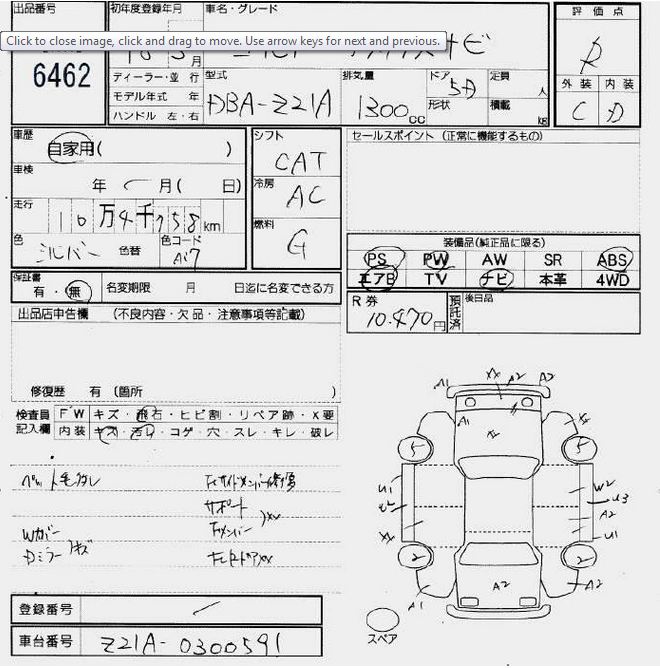 出品番号
初年度登録年月
車名・グレード
評価点
Click to close image, click and drag to move. Use arrow keys for next and previous.
6462
R
月
ディーラー・並行
モデル年式 年
ハンドル 左・右
型式
DBA-Z21A
排気量
1300cc
ドア
5D
形状
定員
人
積載
kg
外装
内装
C
D
車歴
自家用( )
シフト
CAT
セールスポイント (正常に機能するもの)
車検
年 月( 日)
冷房
AC
走行
10万4千758km
燃料
G
色
シルバー
色替
色コード
A17
装備品(純正品に限る)
PS PW AW SR ABS
エアB TV ナビ 本革 4WD
保証書
有・無
名変期限 月 日迄に名変できる方
R券
10.470円
預託済
後日品
出品店申告欄 (不良内容・欠品・注意事項等記載)
修復歴 有 (箇所 )
検査員記入欄
FW キズ・飛石・ヒビ割・リペア跡・X要
内装 キズ・汚れ・コゲ・穴・スレ・キレ・破レ
サポート
Wカバー
Dミラー
キズ
A1 XX A2 A2
A1
5 5
U1 W2
U3
A2
U1
2 2
A1 A2 A2
スペア
登録番号
車台番号
Z21A-0300591